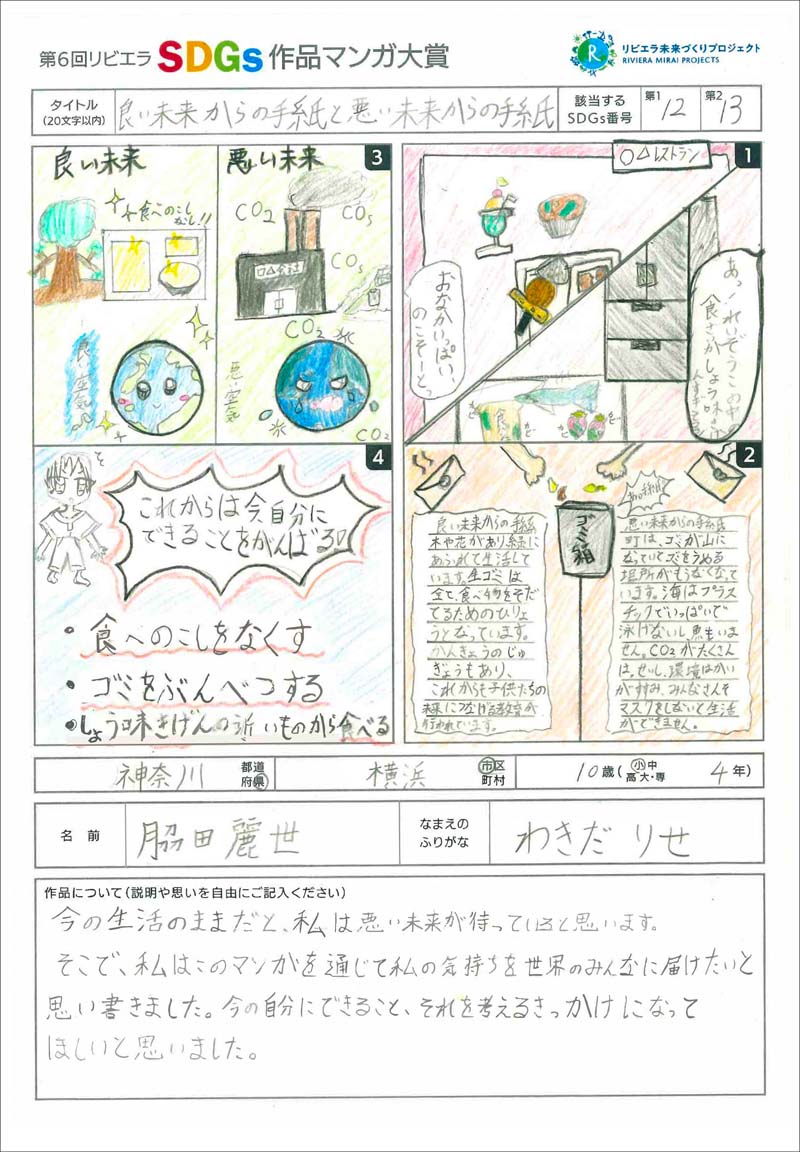 第6回リビエラ SDGs 作品マンガ大賞
リビエラ未来づくりプロジェクト
RIVIERA MIRAI PROJECTS
タイトル
(20文字以内)
良い未来からの手紙と悪い未来からの手紙
該当する
SDGs番号
第1 12
第2 13
1
○△レストラン
おなかいっぱい、
のこそーとっ
あっ!れいぞうこの中
食ざいがしょう味き
食
2
ゴミ箱
良い未来からの手紙
木や花があり緑に
あふれて生活して
います。生ゴミは
全て、食べ物をそだ
てるためのひりょ
うとなっています。
かんきょうのじゅ
ぎょうもあり、
これからも子供たちの
未来につなげる教育が
行われています。
悪い未来からの手紙
町は、ゴミが山に
なっていてゴミをうめる
場所がもうなくなって
います。海はプラス
チックでいっぱいで
泳げないし魚もいま
せん。CO2がたくさん
はっせいし、環境はかい
がすすみ、みんなさんそ
マスクをしないと生活
ができません。
3
良い未来
悪い未来
食べのこし
なし!!
良い空気
CO2
CO2
CO2
□△会社
CO2
悪い空気
氷
氷
CO2
4
これからは今自分に
できることをがんばるぞ
・食べのこしをなくす
・ゴミをぶんべつする
・しょう味きげんの近いものから食べる
神奈川 都道府県
横浜 市区町村
10歳(小中高大・専 4年)
名前
脇田麗世
なまえの
ふりがな
わきだ りせ
作品について(説明や思いを自由にご記入ください)
今の生活のままだと、私は悪い未来が待っていると思います。
そこで、私はこのマンガを通じて私の気持ちを世界のみんなに届けたいと
思い書きました。今の自分にできること、それを考えるきっかけになって
ほしいと思いました。